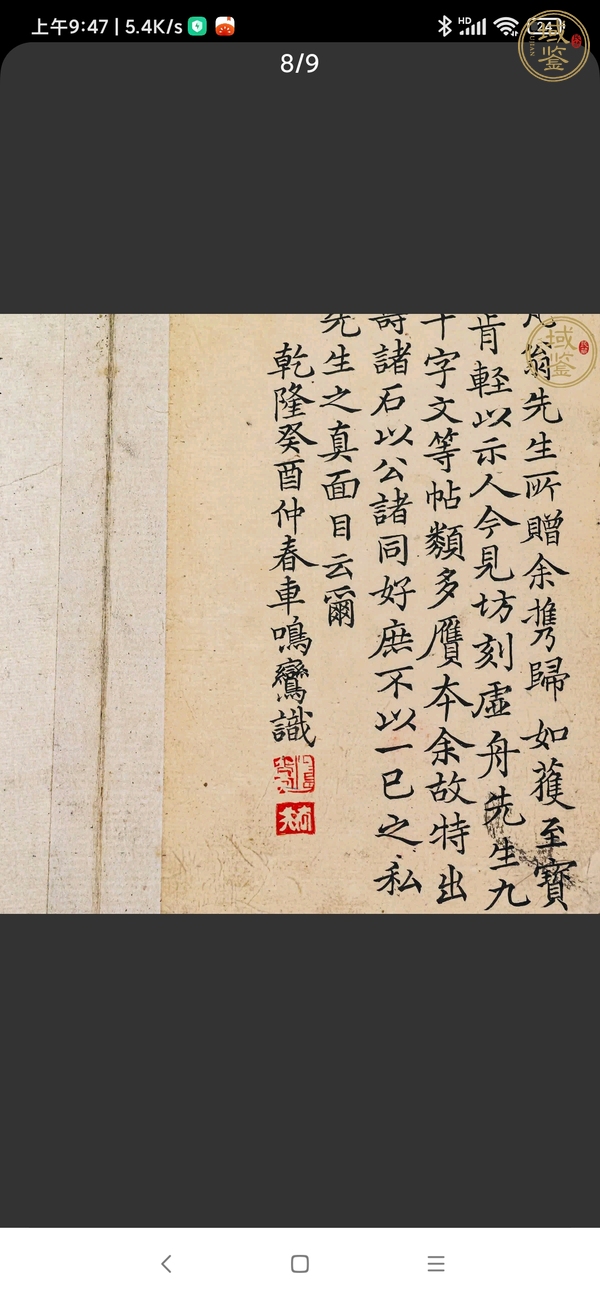 上午9:47 | 5.4K/s
HD
24
8/9
域鉴
域鉴
翁先生所贈余携歸如獲至寶
肯軽以示人今見坊刻虛舟先生九
千字文等帖類多贋本余故特出
壽諸石以公諸同好庶不以一已之私
先生之真面目云爾
乾隆癸酉仲春車鳴鸞識